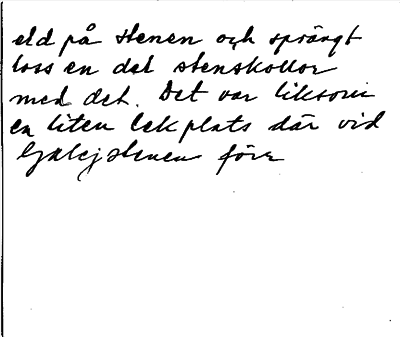 eld på stenen och sprängt
loss en del stenskollor
med det. Det var liksom
en liten lekplats där vid
Galejstenen förr